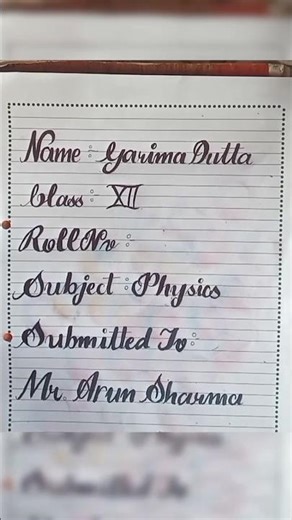 Name : Garima Dutta
Class : XII
Roll No :
Subject : Physics
Submitted To :
Mr. Arun Sharma